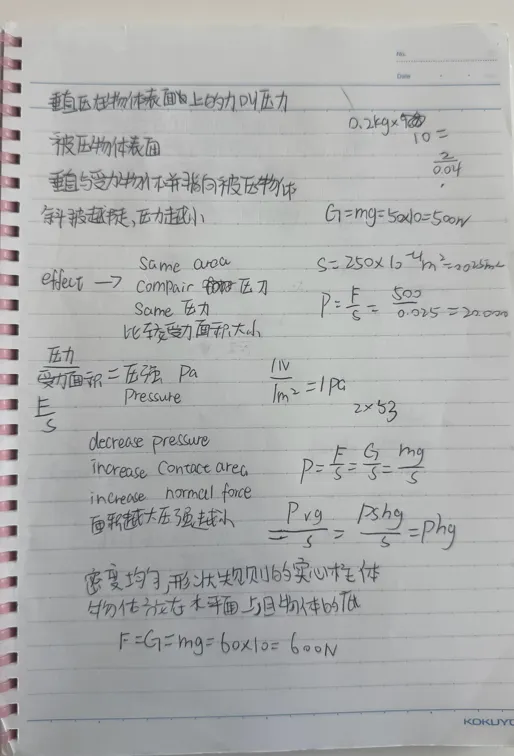 No.
Date
垂直压在物体表面上的力叫压力
0.2kg×
10=
被压物体表面
2
0.04
垂直与受力物体并指向被压物体
斜坡越陡,压力越小
G=mg=50×10=500N
same area
S=250×10⁻⁴m²=0.025m²
effect → compair 压力
Same 压力
P=F/S=500/0.025=20.000
比较受力面积大小
压力
受力面积 =压强 Pa
1N/1m²=1Pa
Pressure
2×53
F
S
decrease pressure
increase contact area
P=F/S=G/S=mg/S
increase normal force
面积越大压强越小
=ρvg/S=ρshg/S=ρhg
密度均匀,形状规则的实心柱体
物体放在水平面上且物体的
F=G=mg=60×10=600N
KOKUYO